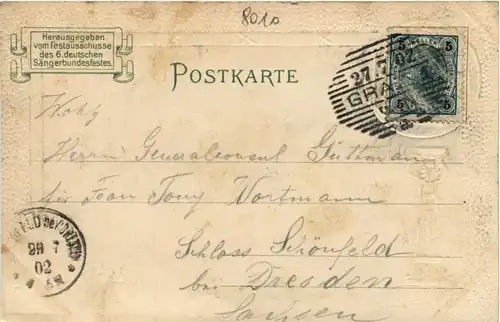 8010
Herausgegeben
vom Festausschusse
des 6. deutschen
Sängerbundesfestes.
POSTKARTE
27.7.02
GRA
5 5
5 5
Wohg
Herrn Generalconsul Guttmann
für Frau Tony Wortmann
Schloss Schönfeld
bei Dresden
Sachsen
29 7
02